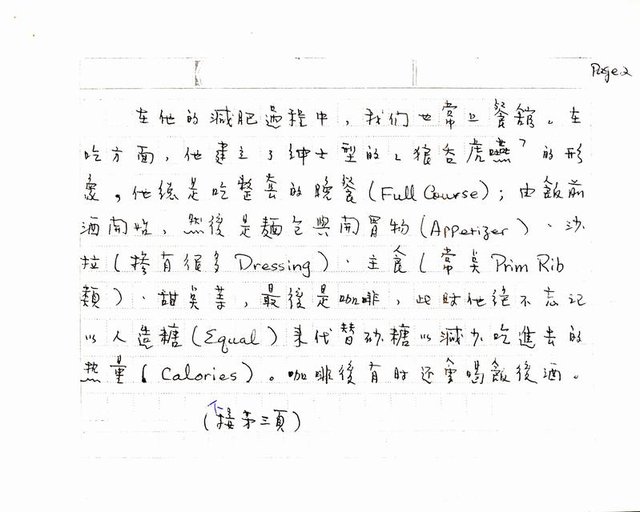 Page 2
在他的減肥過程中，我们也常上餐館。在
吃方面，他建立了紳士型的「狼吞虎嚥」的形
象。他總是吃整套的晚餐(Full Course)；由飯前
酒開始，然後是麵包與開胃物(Appetizer)、沙
拉(摻有很多Dressing)、主食(常吳Prim Rib
類)、甜美菜，最後是咖啡，此時他絕不忘記
以人造糖(Equal)来代替砂糖以減少吃進去的
热量(Calories)。咖啡後有时还會喝飯後酒。
(接第三頁)